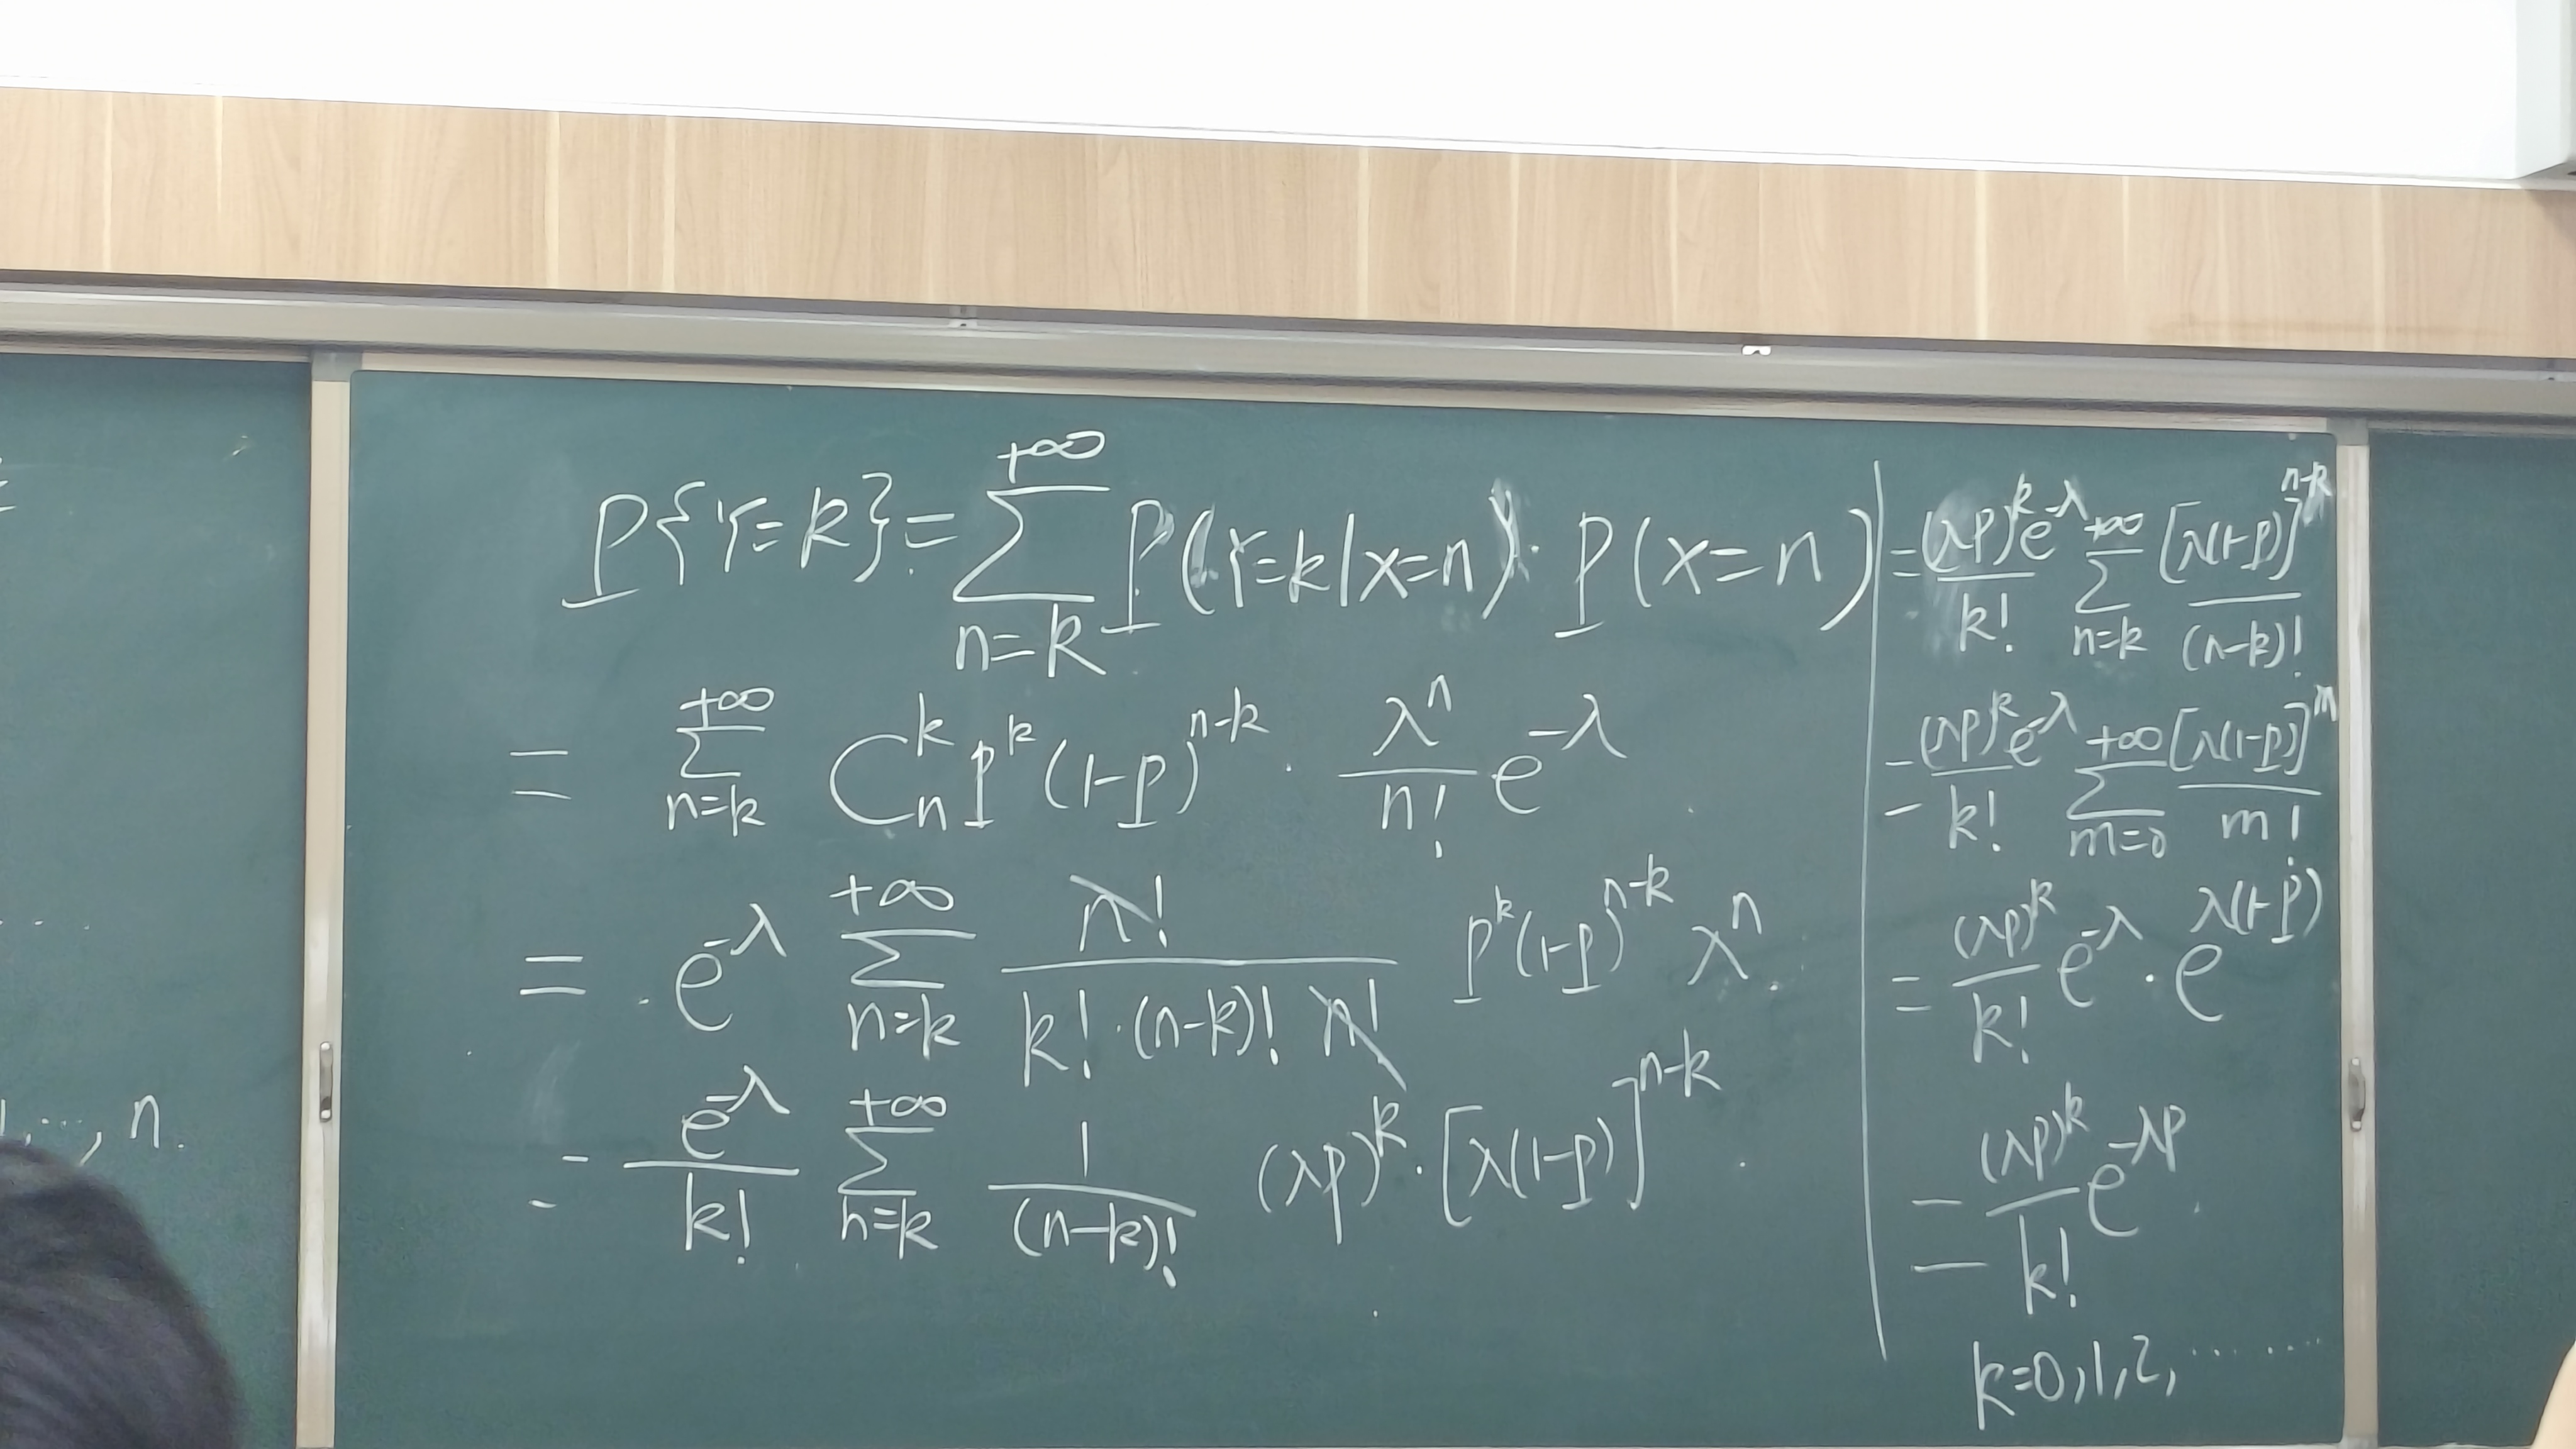 P{Y=k}=∑_{n=k}^{+∞} P(Y=k|X=n)·P(X=n)
= ∑_{n=k}^{+∞} C_n^k p^k (1-p)^{n-k} · \frac{λ^n}{n!} e^{-λ}
= e^{-λ} ∑_{n=k}^{+∞} \frac{n!}{k!·(n-k)! n!} p^k (1-p)^{n-k} λ^n
= \frac{e^{-λ}}{k!} ∑_{n=k}^{+∞} \frac{1}{(n-k)!} (λp)^k · [λ(1-p)]^{n-k}
= \frac{(λp)^k e^{-λ}}{k!} ∑_{n=k}^{+∞} \frac{[λ(1-p)]^{n-k}}{(n-k)!}
= \frac{(λp)^k e^{-λ}}{k!} ∑_{m=0}^{+∞} \frac{[λ(1-p)]^m}{m!}
= \frac{(λp)^k}{k!} e^{-λ} · e^{λ(1-p)}
= \frac{(λp)^k}{k!} e^{-λp}
k=0,1,2,········
..., n.